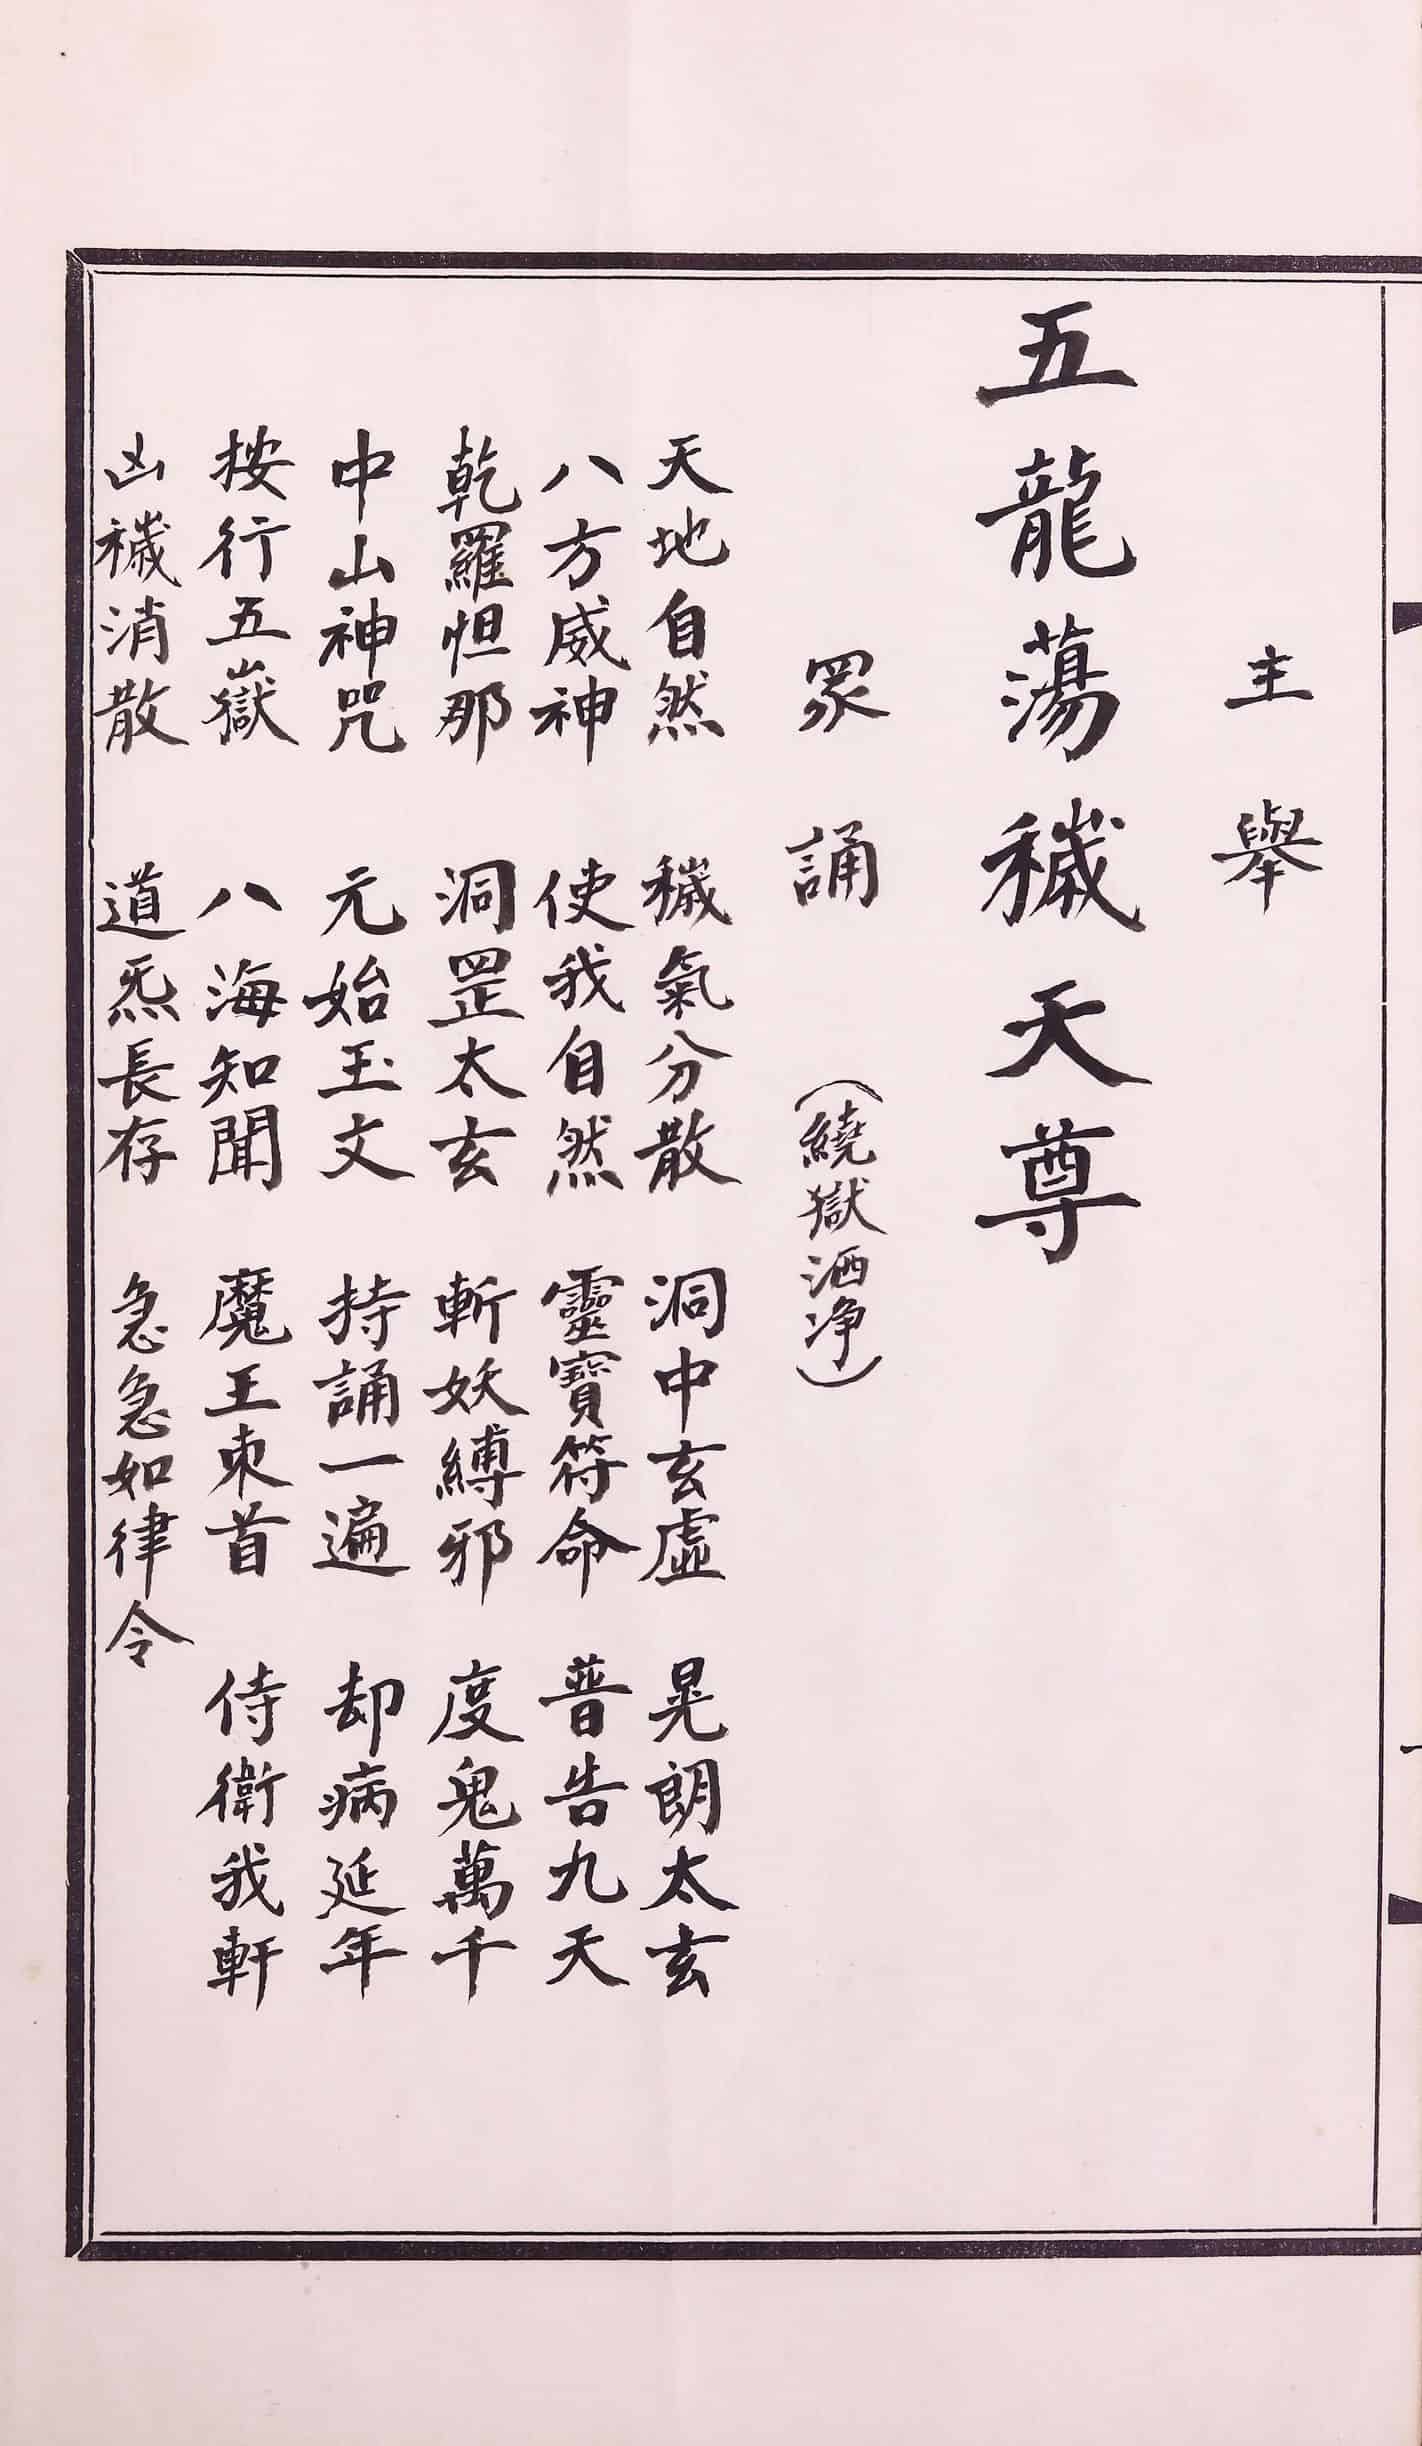 主舉
五龍蕩穢天尊
眾誦（繞獄洒净）
天地自然 穢氣分散 洞中玄虛 晃朗太玄
八方威神 使我自然 靈寶符命 普告九天
乾羅怛那 洞罡太玄 斬妖縛邪 度鬼萬千
中山神咒 元始玉文 持誦一遍 却病延年
按行五嶽 八海知聞 魔王束首 侍衛我軒
凶穢消散 道炁長存 急急如律令